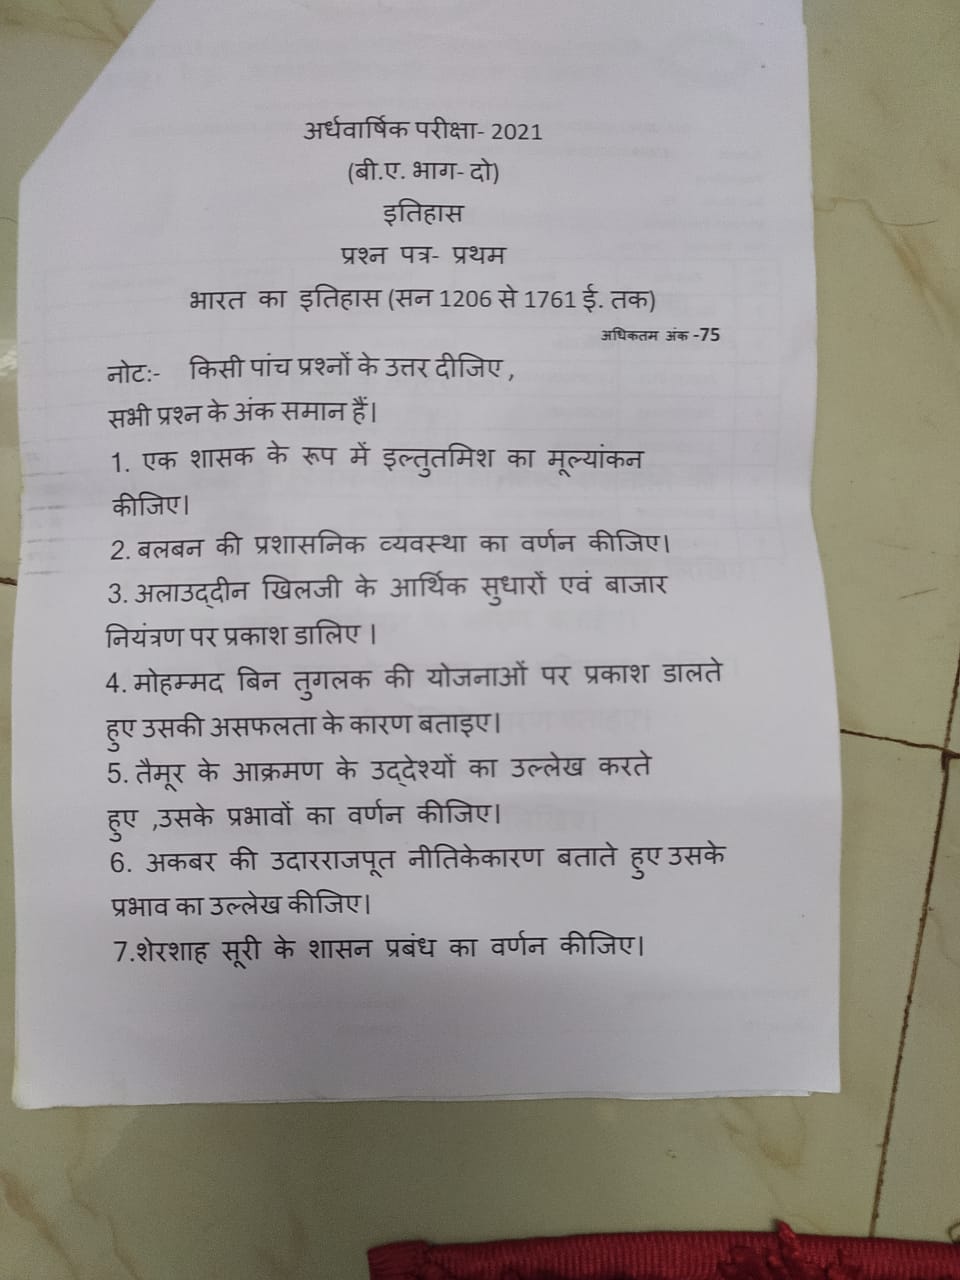 अर्धवार्षिक परीक्षा- 2021
(बी.ए. भाग- दो)
इतिहास
प्रश्न पत्र- प्रथम
भारत का इतिहास (सन 1206 से 1761 ई. तक)
अधिकतम अंक -75
नोटः- किसी पांच प्रश्नों के उत्तर दीजिए ,
सभी प्रश्न के अंक समान हैं।
1. एक शासक के रूप में इल्तुतमिश का मूल्यांकन
कीजिए।
2. बलबन की प्रशासनिक व्यवस्था का वर्णन कीजिए।
3. अलाउद्दीन खिलजी के आर्थिक सुधारों एवं बाजार
नियंत्रण पर प्रकाश डालिए ।
4. मोहम्मद बिन तुगलक की योजनाओं पर प्रकाश डालते
हुए उसकी असफलता के कारण बताइए।
5. तैमूर के आक्रमण के उद्देश्यों का उल्लेख करते
हुए ,उसके प्रभावों का वर्णन कीजिए।
6. अकबर की उदारराजपूत नीतिकेकारण बताते हुए उसके
प्रभाव का उल्लेख कीजिए।
7.शेरशाह सूरी के शासन प्रबंध का वर्णन कीजिए।